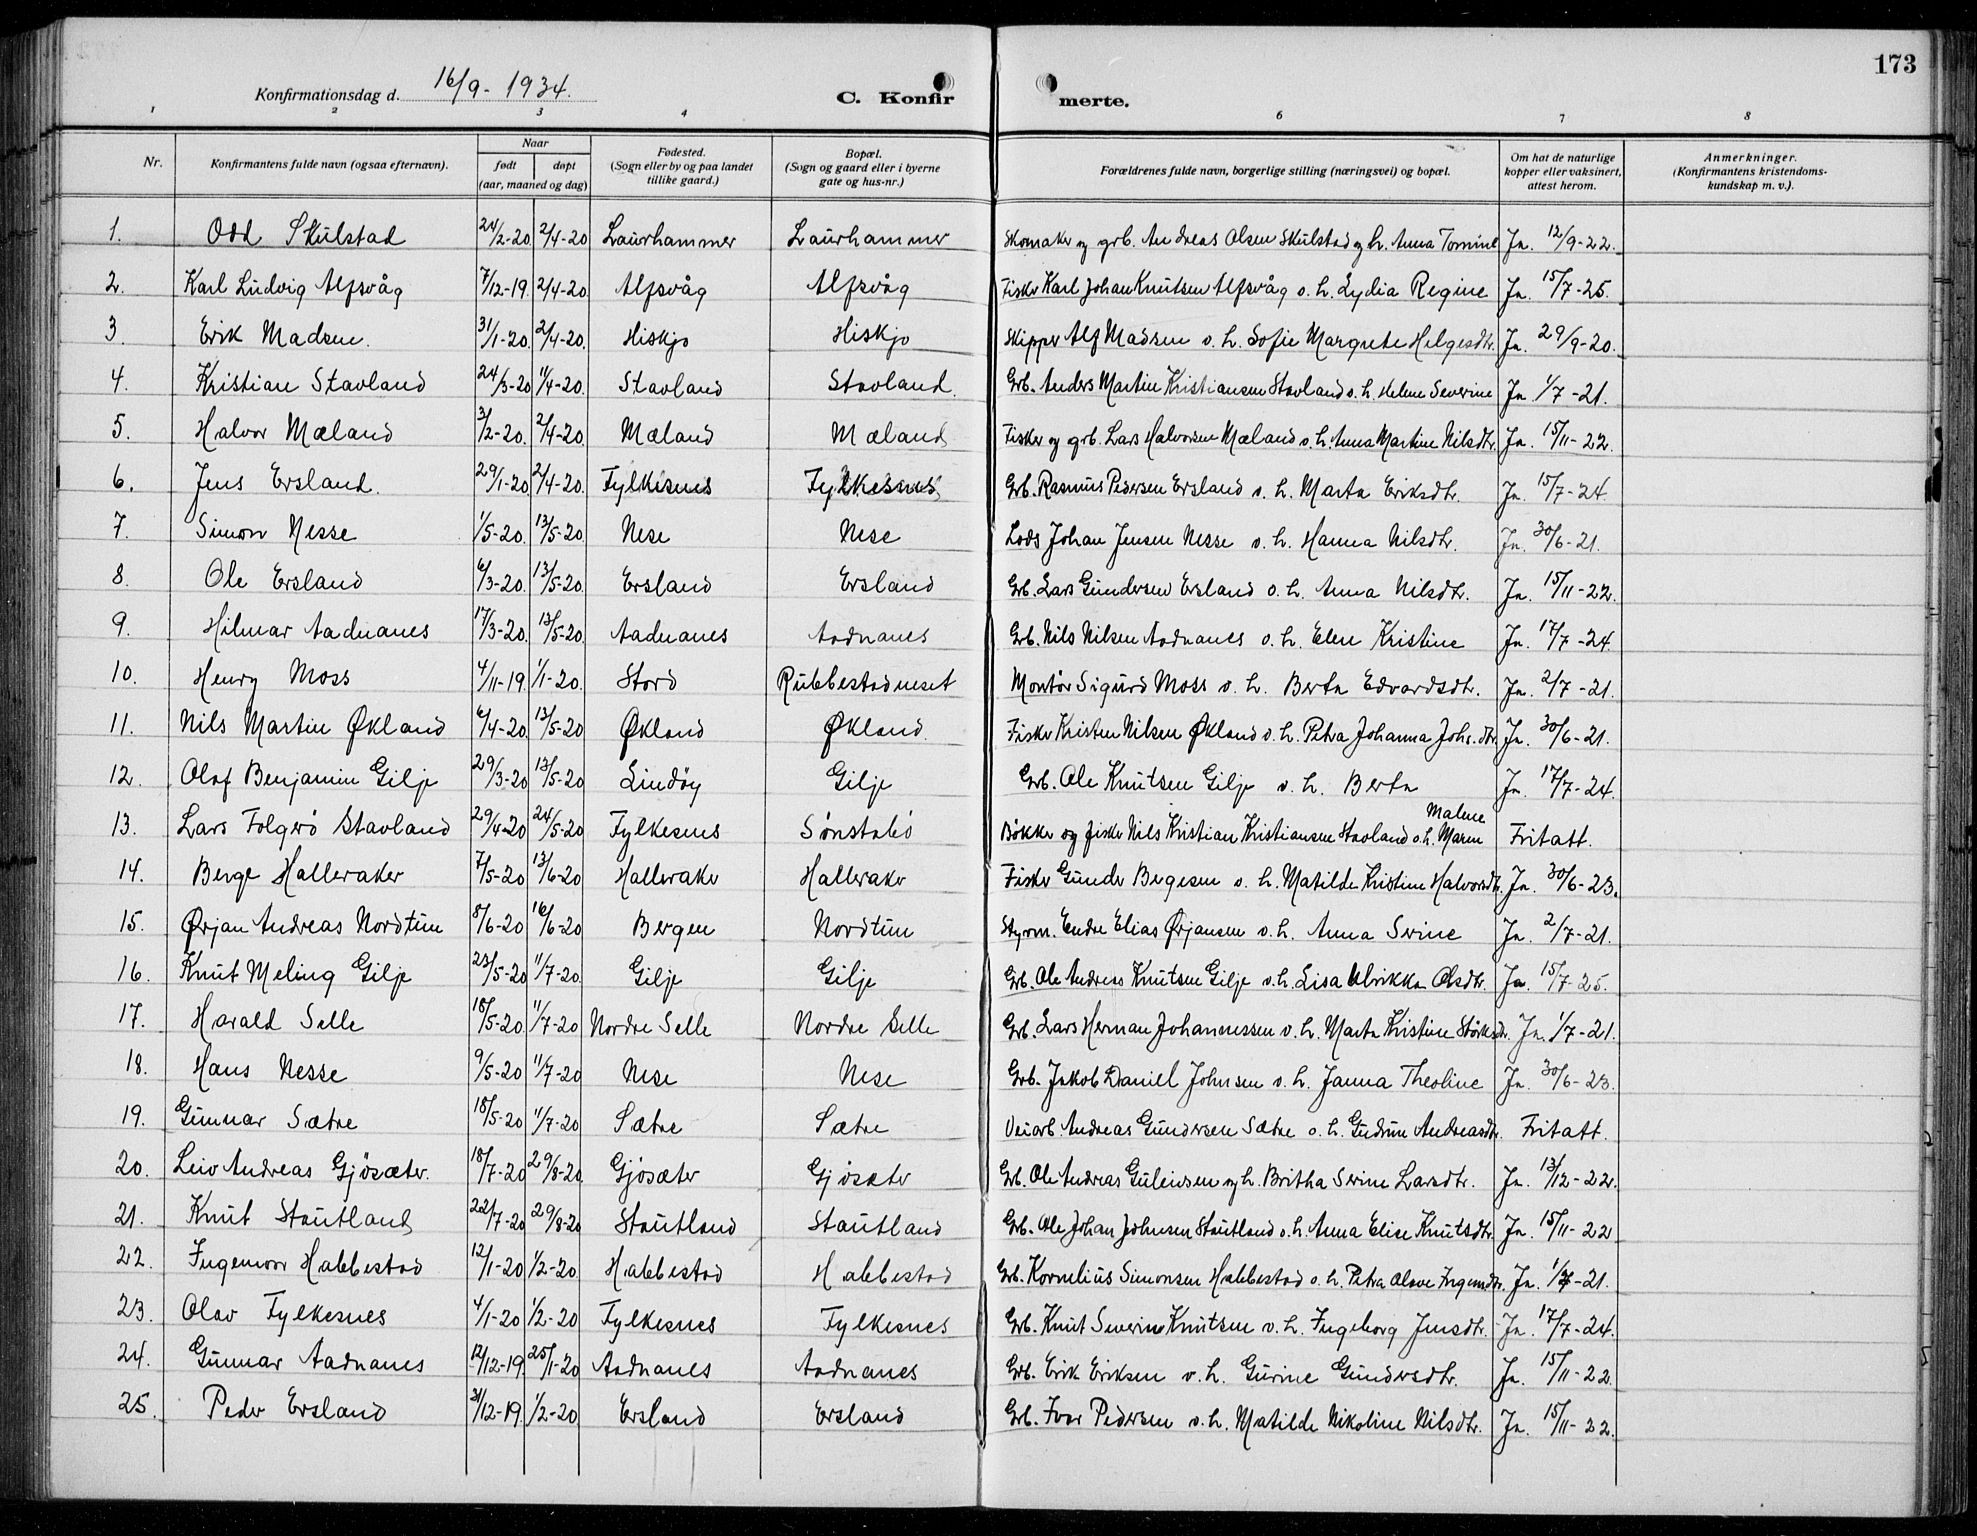 173
Konfirmationsdag d. 16/9 - 1934.
C. Konfirmerte.
1 2 3 4 6 7 8
Nr. Konfirmantens fulde navn (ogsaa efternavn). Naar født døpt (aar, maaned og dag) Fødested. (Sogn eller by og paa landet tillike gaard.) Bopæl. (Sogn og gaard eller i byerne gate og hus-nr.) Forældrenes fulde navn, borgerlige stilling (næringsvei) og bopæl. Om hat de naturlige kopper eller vaksinert, attest herom. Anmerkninger. (Konfirmantens kristendomskundskap m. v.).
1. Odd Skulstad 24/2-20. 2/4-20 Laurhammer Laurhammer Skomaker og grb. Andreas Olsen Skulstad og h. Anna Tomine Ja. 12/9-22.
2. Karl Ludvig Alfsvåg 7/12-19. 2/4-20. Alfsvåg Alfsvåg Fisker Karl Johan Knutsen Alfsvåg o. h. Lydia Regine Ja. 15/7-25.
3. Erik Madsen. 31/1-20. 2/4-20. Hiskjo Hiskjo Skipper Alf Madsen o. h. Sofie Margrete Helgesdtr. Ja. 29/9-20.
4. Kristian Stavland 24/3-20 1/4-20. Stavland Stavland. Grb. Anders Martin Kristiansen Stavland o. h. Helene Severine Ja. 1/7-21.
5. Halvor Mæland 3/2-20. 2/4-20. Mæland Mæland Fisker og grb. Lars Halvorsen Mæland o. h. Anna Martine Nilsdtr. Ja. 15/11-22.
6. Jens Ersland. 29/1-20 2/4-20. Fylkesnes Fylkesnes Grb. Rasmus Pedersen Ersland o. h. Marta Eriksdtr. Ja. 15/7-24.
7. Simon Nesse 1/5-20. 13/5-20. Nese Nese Lods Johan Jensen Nesse o. h. Hanna Nilsdtr. Ja. 30/6-21.
8. Ole Ersland 6/3-20. 13/5-20. Ersland Ersland Grb. Lars Gundersen Ersland o. h. Anna Nilsdtr. Ja. 15/11-22.
9. Hilmar Aadnanes 17/3-20. 13/5-20. Aadnanes Aadnanes Grb. Nils Nilsen Aadnanes o. h. Elen Kristine Ja. 17/7-24.
10. Henry Moss 4/11-19. 1/1-20. Stord Rubbestadneset Montør Sigurd Moss o. h. Berta Edvardsdtr. Ja. 2/7-21.
11. Nils Martin Økland 6/4-20. 13/5-20 Økland Økland. Fisker Kristen Nilsen Økland o. h. Petra Johanna Johs. dtr. Ja. 30/6-21.
12. Olaf Benjamin Gilje 29/3-20 13/5-20 Lindøy Gilje Grb. Ole Knutsen Gilje o. h. Berta Ja. 17/7-24.
13. Lars Folgerø Stavland 29/4-20 24/5-20 Fylkesnes Sønstabø Bøkker og fisker Nils Kristian Kristiansen Stavland o. h. Maren Malene Fritatt.
14. Berge Halleraker 7/5-20 13/6-20 Halleraker Halleraker Fisker Gunder Bergesen o. h. Matilde Kristine Halvorsdtr. Ja. 30/6-23.
15. Ørjan Andreas Nordtun 8/6-20 16/6-20 Bergen Nordtun Styrm. Endre Elias Ørjansen o. h. Anna Serine Ja. 2/7-21.
16. Knut Meling Gilje 23/5-20 11/7-20. Gilje Gilje Grb. Ole Andreas Knutsen Gilje o. h. Lisa Ulrikka Olsdtr. Ja. 15/7-25.
17. Harald Selle 18/5-20 11/7-20 Nordre Selle Nordre Selle Grb. Lars Herman Johannessen o. h. Marta Kristine Størksdtr. Ja. 1/7-21.
18. Hans Nesse 9/5-20 11/7-20 Nese Nese Grb. Jakob Daniel Johnsen o. h. Janna Theoline Ja. 30/6-23.
19. Gunnar Sætre 18/5-20 11/7-20 Sætre Sætre Veiarb. Andreas Gundersen Sætre o. h. Gudrun Andreasdtr. Fritatt.
20. Leiv Andreas Gjøsæter. 18/7-20 29/8-20 Gjøsæter Gjøsæter Grb. Ole Andreas Guleivsen og h. Britha Serine Larsdtr. Ja. 13/12-22.
21. Knut Stautland 22/7-20 29/8-20 Stautland Stautland Grb. Ole Johan Johnsen Stautland o. h. Anna Elise Knutsdtr. Ja. 15/11-22
22. Ingemoor Habbestad 12/1-20 1/2-20. Habbestad Habbestad Grb. Kornelius Simonsen Habbestad o. h. Petra Olave Ingem.dtr. Ja. 1/7-21.
23. Olav Fylkesnes 4/1-20 1/2-20 Fylkesnes Fylkesnes Grb. Knut Severin Knutsen o. h. Ingeborg Jensdtr. Ja. 17/7-24.
24. Gunnar Aadnanes 12/12-19. 25/1-20 Aadnanes Aadnanes Grb. Erik Eriksen o. h. Gurine Gundersdtr. Ja. 15/11-22.
25. Peder Ersland 31/12-19. 1/2-20. Ersland Ersland Grb. Ivar Pedersen o. h. Matilde Nikoline Nilsdtr. Ja. 15/11-22.